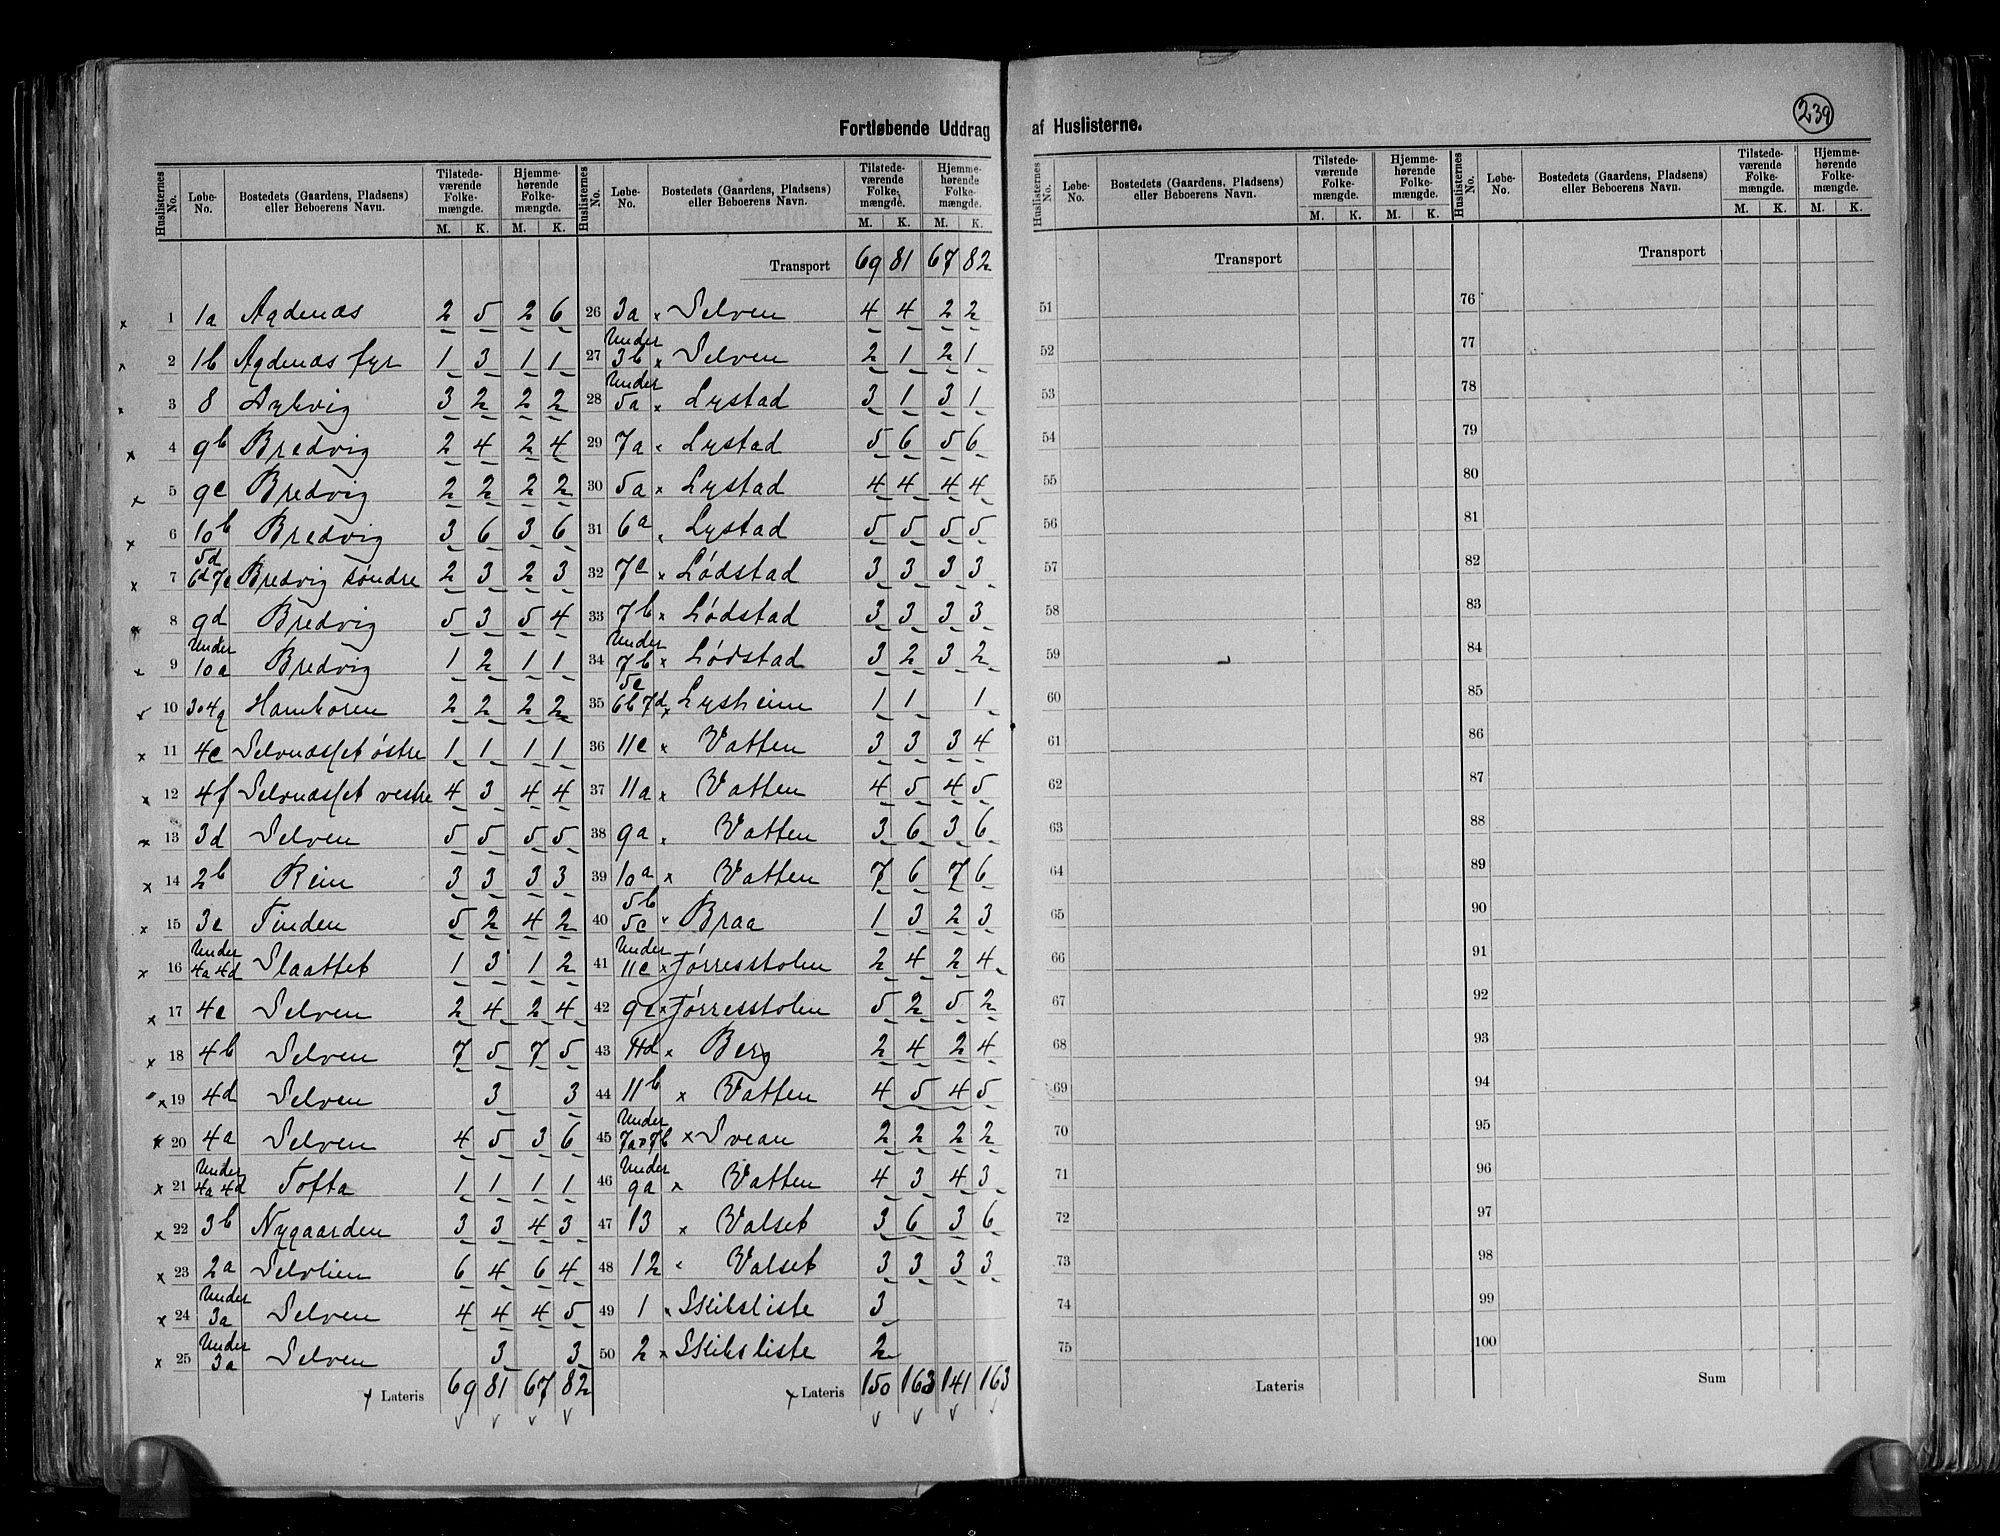 Fortløbende Uddrag af Huslisterne.
239
Huslisternes No. Løbe-No. Bostedets (Gaardens, Pladsens) eller Beboerens Navn. Tilstedeværende Folkemængde. M. K. Hjemmehørende Folkemængde. M. K.
1 1a Agdenæs 2 5 2 6
2 1b Agdenæs fyr 1 3 1 1
3 8 3 2 2 2
4 9b Bredvig 2 4 2 4
5 9c Bredvig 2 2 2 2
6 10b Bredvig 3 6 3 6
7 5d 6d 7e Bredvig søndre 2 3 2 3
8 9d Bredvig 5 3 5 4
9 Under 10a Bredvig 1 2 1 1
10 Hamboren 2 2 2 2
11 4e Selvnæsset østre 1 1 1 1
12 4f Selvnæsset vestre 4 3 4 4
13 3d Selven 5 5 5 5
14 2b Rein 3 3 3 3
15 3c Tinden 5 2 4 2
16 Under 4a 4d Slaattet 1 3 1 2
17 4c Selven 2 4 2 4
18 4b Selven 7 5 7 5
19 4d Selven 3 3
20 4a Selven 4 5 3 6
21 Under 4a 4d Tofta 1 1 1 1
22 3b Nygaarden 3 3 4 3
23 2a Selvlien 6 4 6 4
24 Under 3a Selven 4 4 4 5
25 Under 3a Selven 3 3
Lateris 69 81 67 82
Huslisternes No. Løbe-No. Bostedets (Gaardens, Pladsens) eller Beboerens Navn. Tilstedeværende Folkemængde. M. K. Hjemmehørende Folkemængde. M. K.
Transport 69 81 67 82
26 3a x Selven 4 4 2 2
27 Under 3b x Selven 2 1 2 1
28 Under 5a x Lystad 3 1 3 1
29 7a Lystad 5 6 5 6
30 5a x Lystad 4 4 4 4
31 6a Lystad 5 5 5 5
32 7c x Lødstad 3 3 3 3
33 7b x Lødstad 3 3 3 3
34 Under 7b x Lødstad 3 2 3 2
35 5c 6b 7d x Lysheim 1 1 1
36 11c x Vatten 3 3 3 4
37 11a x Vatten 4 5 4 5
38 9a Vatten 3 6 3 6
39 10a x Vatten 7 6 7 6
40 5b 5c Braa 1 3 2 3
41 Under 11c x Tørresstolen 2 4 2 4
42 9c x Tørresstolen 5 2 5 2
43 11d x Berg 2 4 2 4
44 11b x Vatten 4 5 4 5
45 Under 7a 7b x Svean 2 2 2 2
46 Under 9a x Vatten 4 3 4 3
47 13 x Valset 3 6 3 6
48 12 Valset 3 3 3 3
49 1 x Skibsliste 3
50 2 x Skibsliste 2
x Lateris 150 163 141 163
Huslisternes No. Løbe-No. Bostedets (Gaardens, Pladsens) eller Beboerens Navn. Tilstedeværende Folkemængde. M. K. Hjemmehørende Folkemængde. M. K.
Transport
51
52
53
54
55
56
57
58
59
60
61
62
63
64
65
66
67
68
69
70
71
72
73
74
75
Lateris
Huslisternes No. Løbe-No. Bostedets (Gaardens, Pladsens) eller Beboerens Navn. Tilstedeværende Folkemængde. M. K. Hjemmehørende Folkemængde. M. K.
Transport
76
77
78
79
80
81
82
83
84
85
86
87
88
89
90
91
92
93
94
95
96
97
98
99
100
Sum